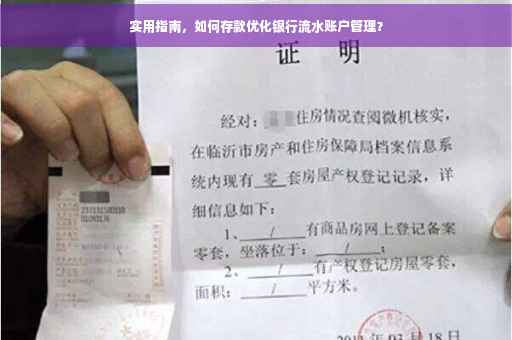 实用指南，如何存款优化银行流水账户管理？
证 明
经对：住房情况查阅微机核实，
在临沂市房产和住房保障局档案信息系
统内现有 零 套房屋产权登记记录，详
细信息如下：
1、 / 有商品房网上登记备案
零套，坐落位于： / ；
2、 / 有产权登记房屋零套，
面积： / 平方米。